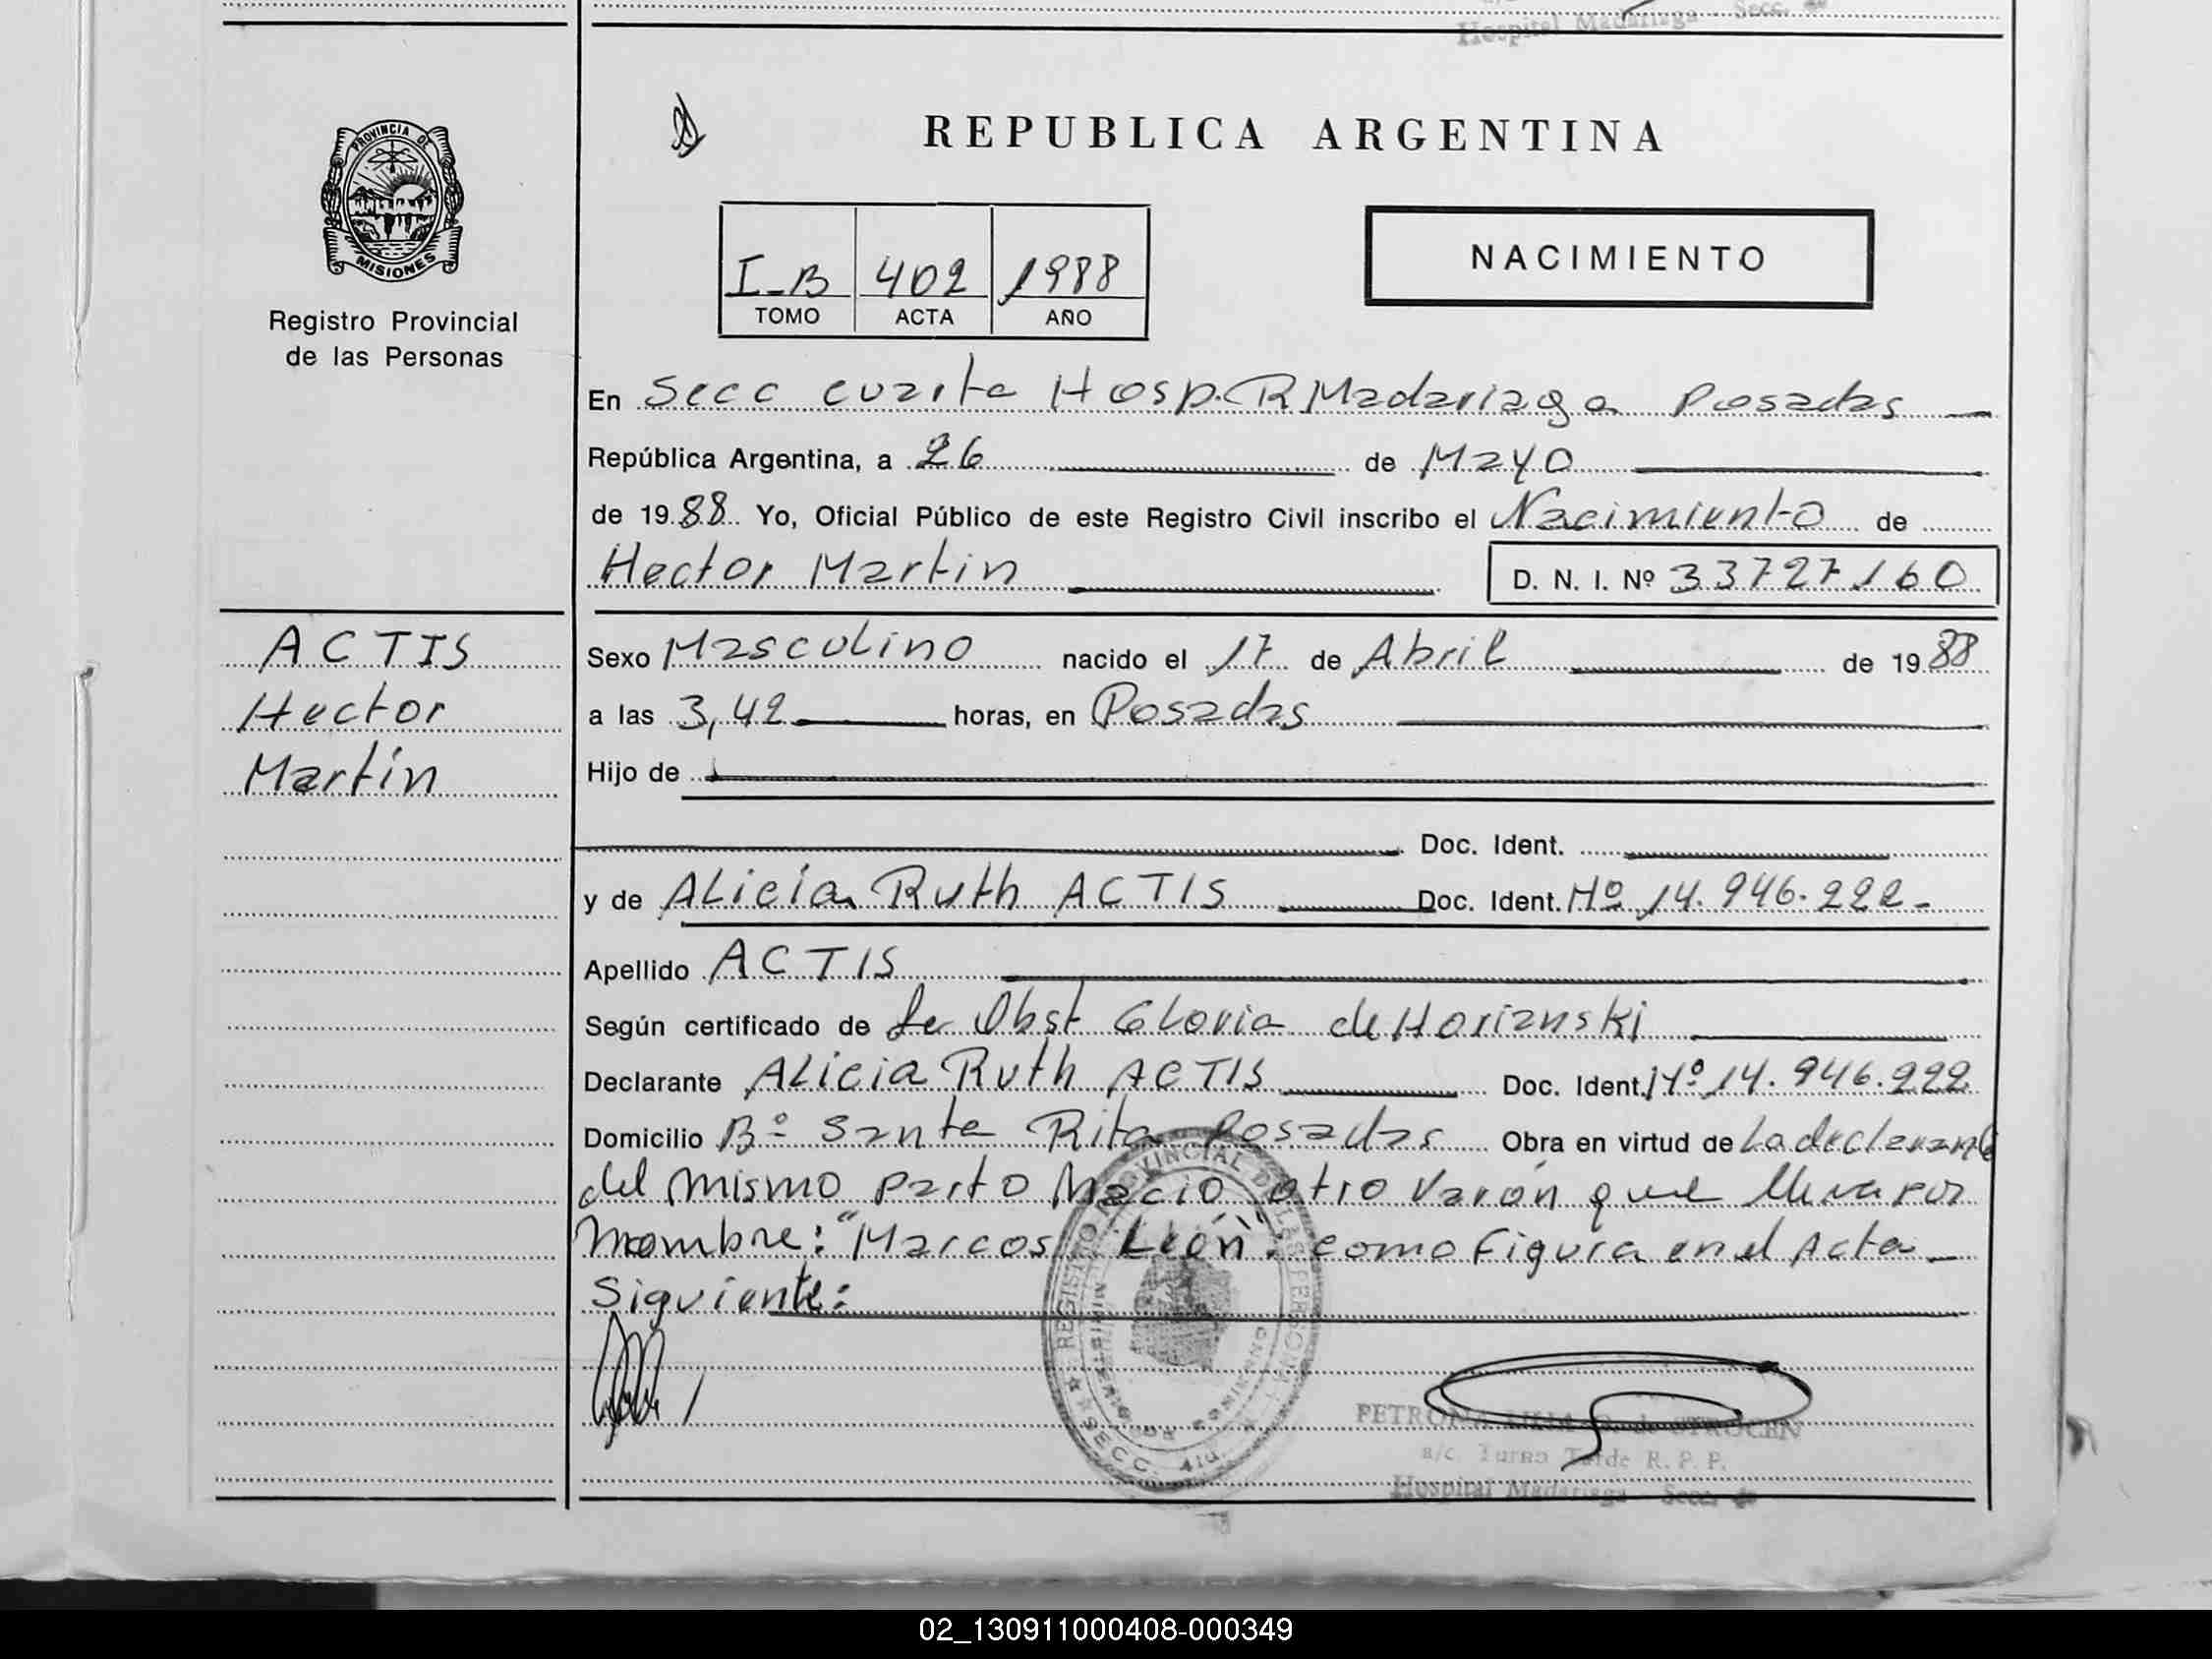 Hospital Madariaga - Secc. 4º
PROVINCIA DE
MISIONES
Registro Provincial
de las Personas
REPUBLICA ARGENTINA
I-B 402 1988
TOMO ACTA AÑO
NACIMIENTO
En Secc cuarta Hosp. R Madariaga Posadas
República Argentina, a 26 de Mayo
de 1988 Yo, Oficial Público de este Registro Civil inscribo el Nacimiento de
Hector Martin D. N. I. Nº 33727160
ACTIS
Hector
Martin
Sexo Masculino nacido el 17 de Abril de 1988
a las 3,42 horas, en Posadas
Hijo de
Doc. Ident.
y de ALicia Ruth ACTIS Doc. Ident. Nº 14.946.222-
Apellido ACTIS
Según certificado de la Obst Gloria de Horianski
Declarante ALicia Ruth ACTIS Doc. Ident. Nº 14.946.222
Domicilio Bº Santa Rita Posadas Obra en virtud de La declarante
del mismo parto Nacio otro Varón que lleva por
Nombre: "Marcos León". como figura en el Acta
Siguiente:
REGISTRO PROVINCIAL DE LAS PERSONAS
MINISTERIO DE GOBIERNO
SECC. 4ta.
PETRONA de
a/c. Turno Tarde R. P. P.
Hospital Madariaga - Secc. 4º
02_130911000408-000349